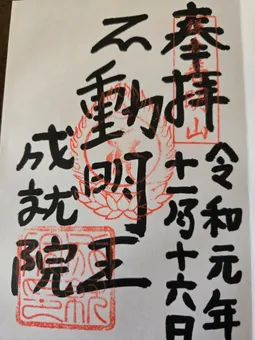 奉拝
令和元年
十一月十六日
不動明王
成就院